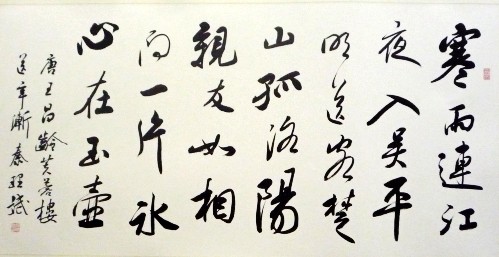 寒雨連江
夜入吴平
明送客楚
山孤洛陽
親友如相
问一片冰
心在玉壶
唐王昌齡芙蓉樓
送辛漸 秦